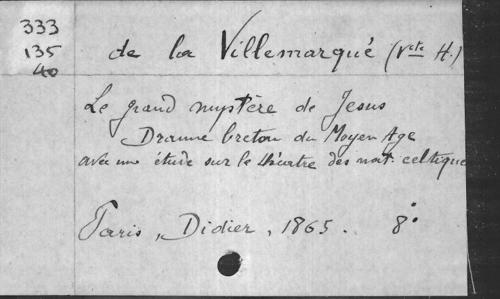 333
135
40
de la Villemarqué (Vcte H.)
Le grand mystère de Jesus
Drame breton du Moyen Age
avec une étude sur le théatre des nat. celtiques
Paris, Didier, 1865. 8°